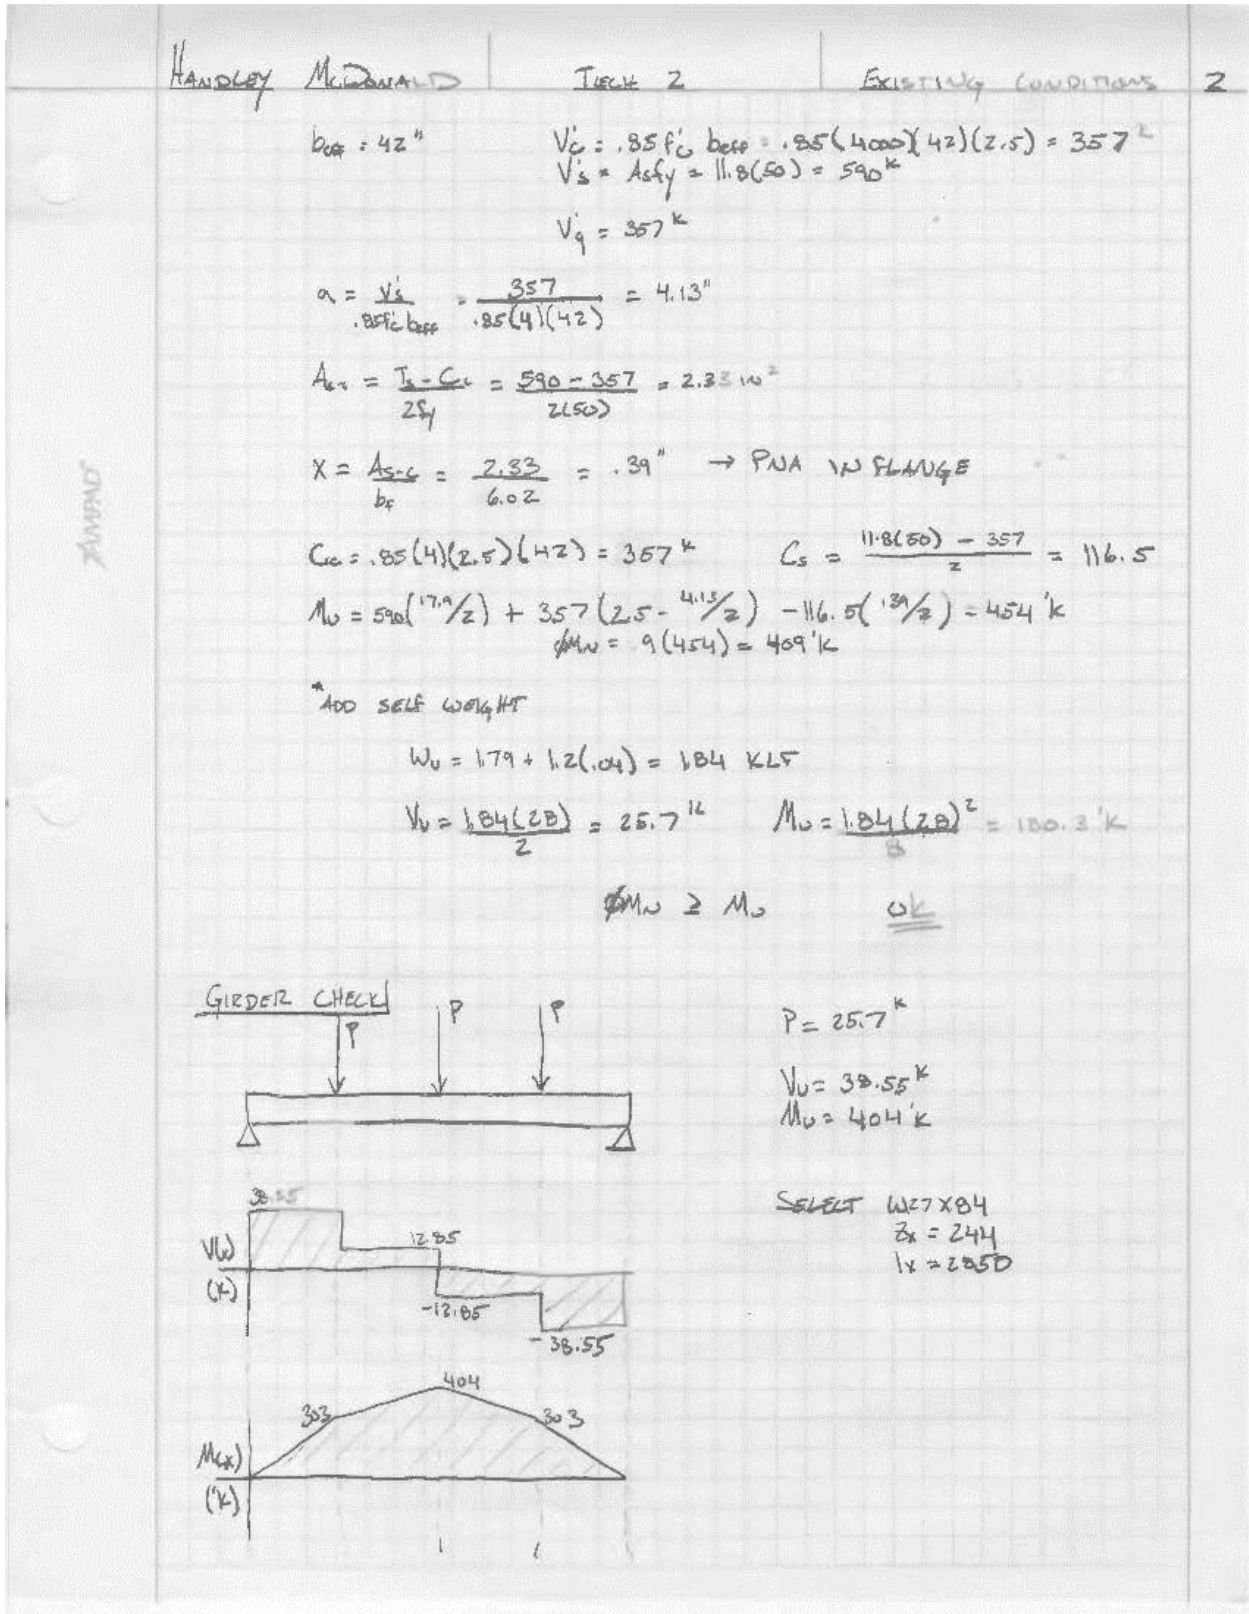 HANDLEY McDONALD TECH 2 EXISTING CONDITIONS 2
beff = 42" V'c = .85 f'c beff = .85(4000)(42)(2.5) = 357k
V's = Asfy = 11.8(50) = 590k
V'q = 357k
a = V's / .85f'c beff = 357 / .85(4)(42) = 4.13"
As-c = Ts - Cc / 2fy = 590 - 357 / 2(50) = 2.33 in2
X = As-c / bf = 2.33 / 6.02 = .39" → PNA IN FLANGE
Cc = .85(4)(2.5)(42) = 357k Cs = 11.8(50) - 357 / 2 = 116.5
Mn = 590(17.9/2) + 357(2.5 - 4.13/2) - 116.5(.39/2) = 454 'k
ϕMn = .9(454) = 409 'k
*ADD SELF WEIGHT
Wu = 1.79 + 1.2(.04) = 1.84 KLF
Vu = 1.84(28) / 2 = 25.7k Mu = 1.84(28)2 / 8 = 180.3 'k
ϕMn ≥ Mu ok
GIRDER CHECK
P P P
P = 25.7k
Vu = 38.55k
Mu = 404 'k
38.55
SELECT W27x84
Zx = 244
Ix = 2850
V(x)
(k)
12.85
-12.85
-38.55
404
303 303
M(x)
('k)
AMPAD